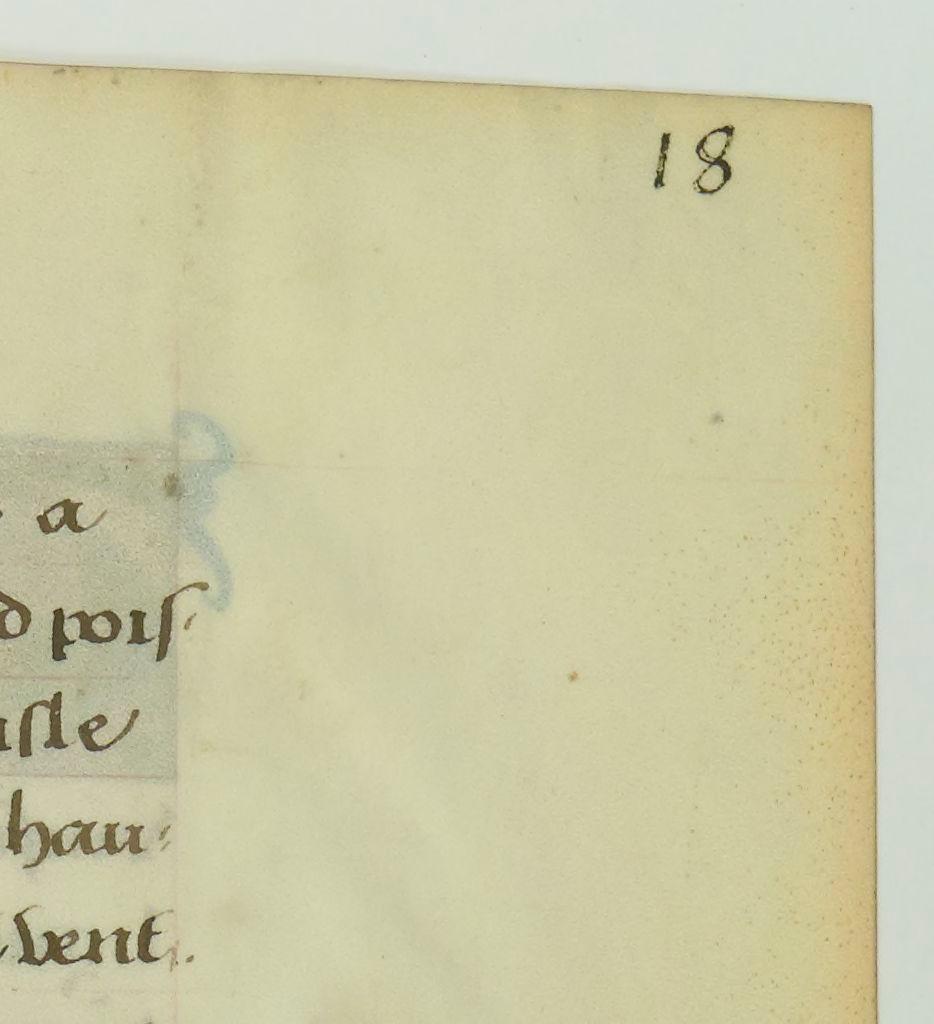 18
a
poiſ-
isle
hau-
vent.